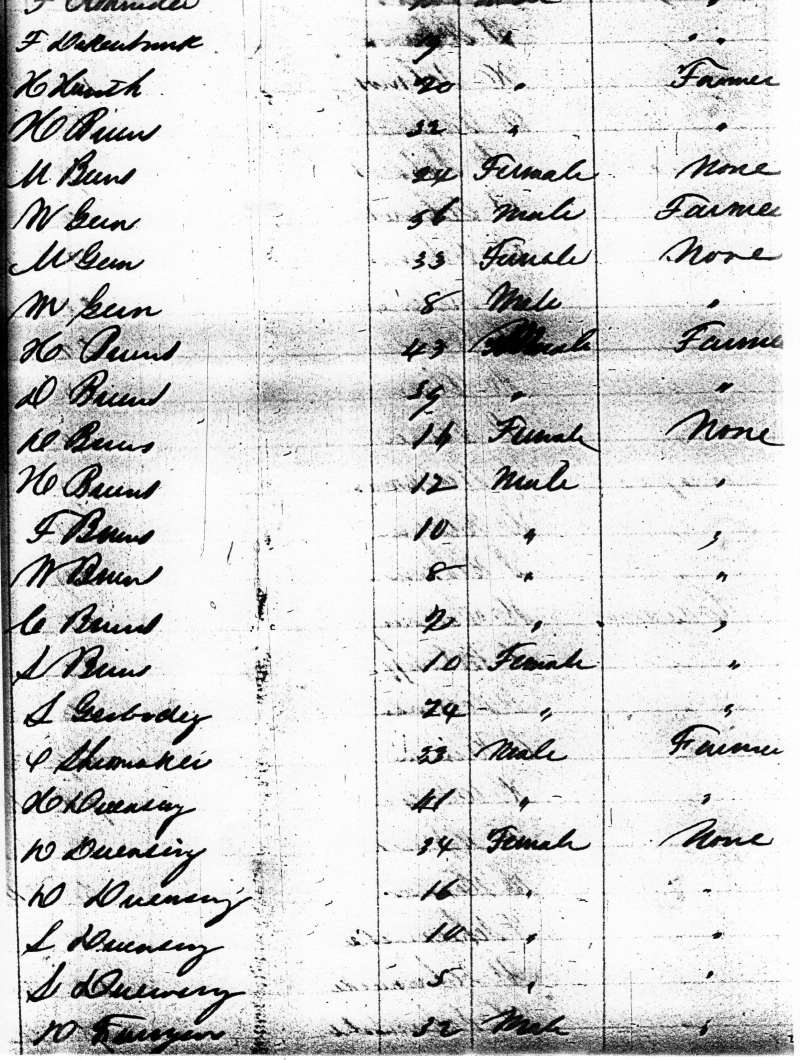 F " "
H 20 " Farmer
H Bruns 32 " "
M Bruns 24 Female None
W Gern 56 Male Farmer
M Gern 33 Female None
M Gern 8 Male "
H Bruns 43 Male Farmer
D Bruns 39 " "
D Bruns Female None
H Bruns 12 Male "
F Bruns 10 " "
W Bruns 8 " "
C Bruns " "
S Bruns 10 Female "
S 24 " "
C Shumaker 33 Male Farmer
H Duensing 41 " "
D Duensing 34 Female None
D Duensing 16 " "
S Duensing " "
S Duensing 5 " "
32 Male "